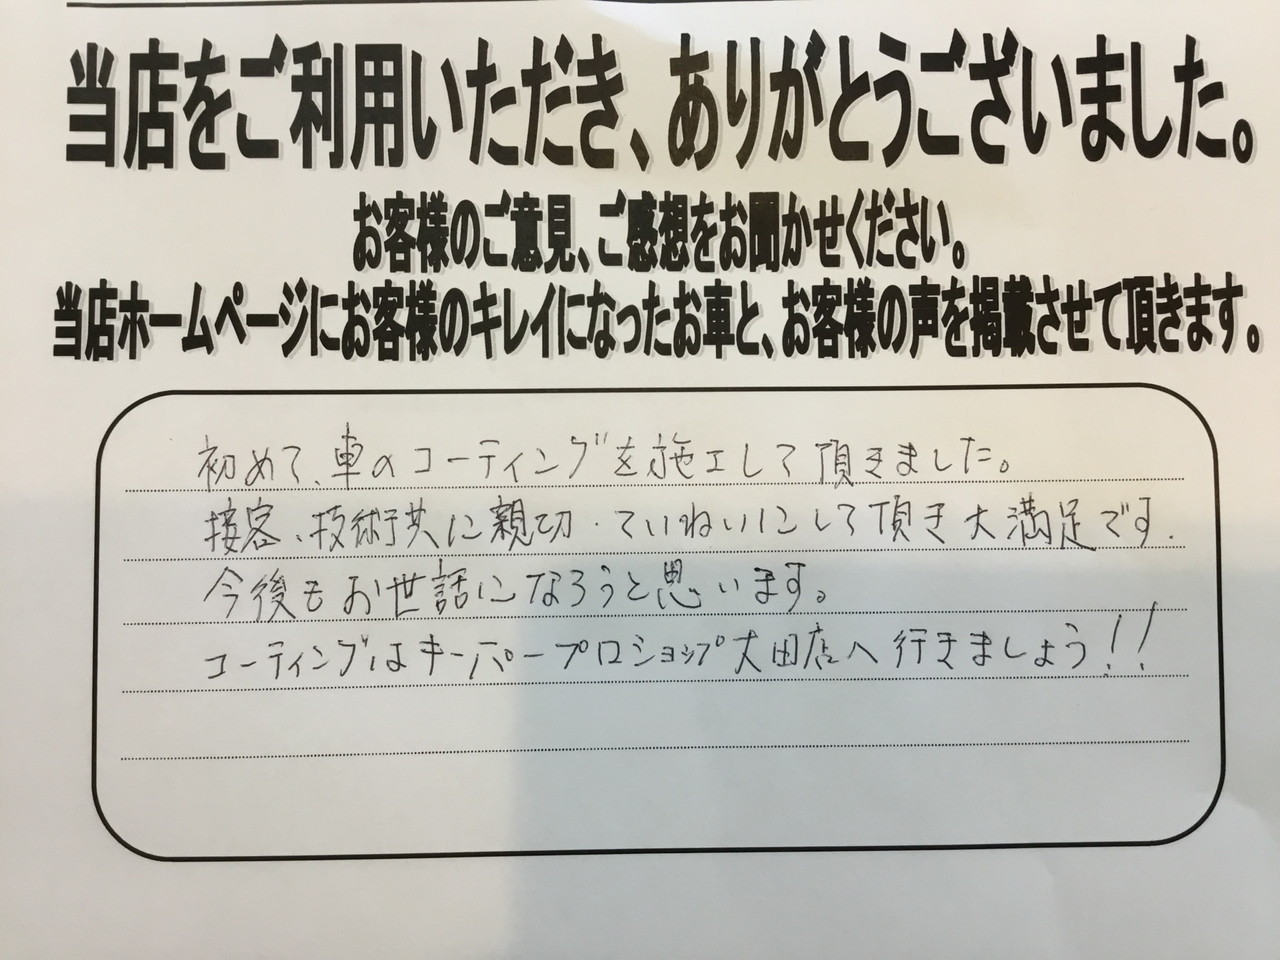 当店をご利用いただき、ありがとうございました。
お客様のご意見、ご感想をお聞かせください。
当店ホームページにお客様のキレイになったお車と、お客様の声を掲載させて頂きます。
初めて、車のコーティングを施工して頂きました。
接客、技術共に親切・ていねいにして頂き大満足です.
今後もお世話になろうと思います。
コーティングはキーパープロショップ大田店へ行きましょう!!